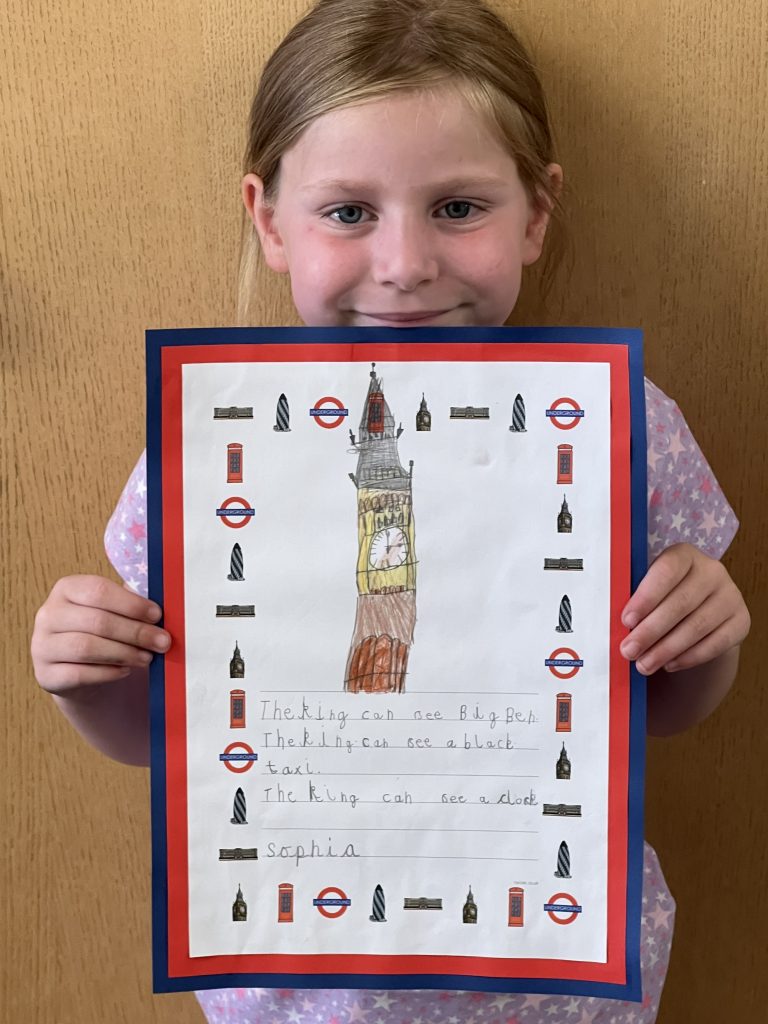 UNDERGROUND
UNDERGROUND
UNDERGROUND
UNDERGROUND
The king can see Big Ben.
The king can see a black
UNDERGROUND
taxi.
The king can see a clock
Sophia
UNDERGROUND
UNDERGROUND